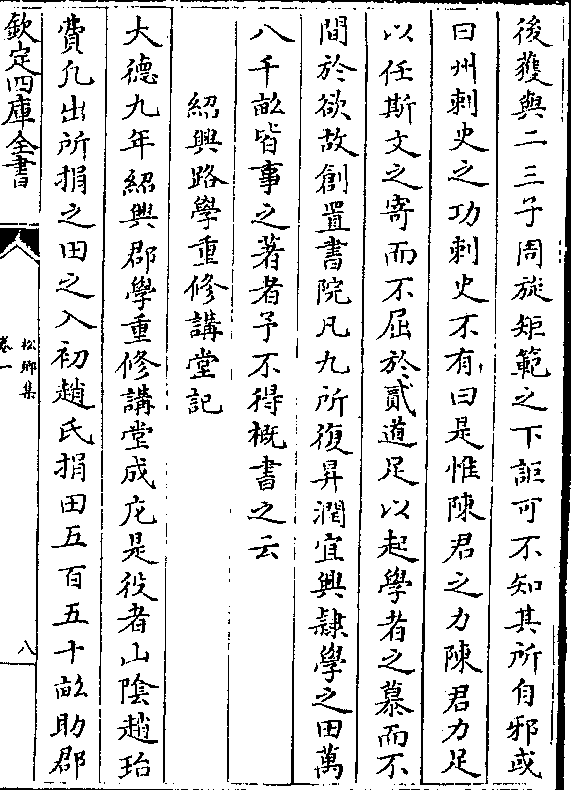 後獲與二三子周旋矩範之下詎可不知其所自邪或
曰州刺史之功刺史不有曰是惟陳君之力陳君力足
以任斯文之寄而不屈於貳道足以起學者之慕而不
間於欲故創置書院凡九所復昇潤宜興隷學之田萬
八千畝皆事之著者予不得概書之云
紹興路學重修講堂記
大德九年紹興郡學重修講堂成庀是役者山陰趙珆
費凡出所捐之田之入初趙氏捐田五百五十畝助郡
欽定四庫全書
松鄉集
卷一
八